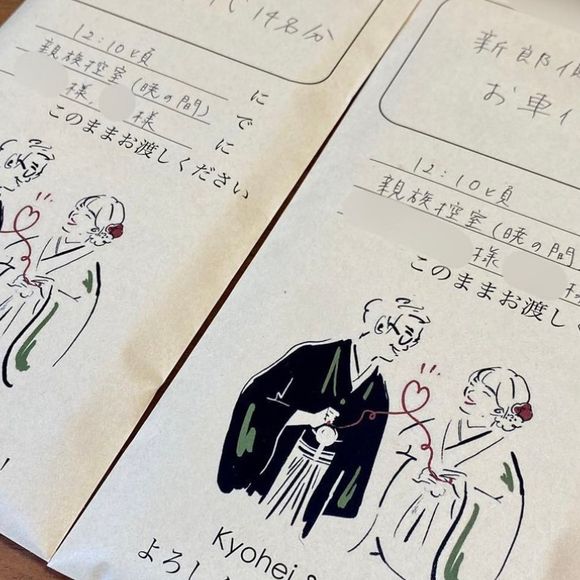 代14名分
12:10頃 に
親族控室(暁の間) で
様、 様 に
このままお渡しください
!
新郎側
お車代
12:10頃
親族控室(暁の間)
様 様
このままお渡しくだ
Kyohei &
よろしく